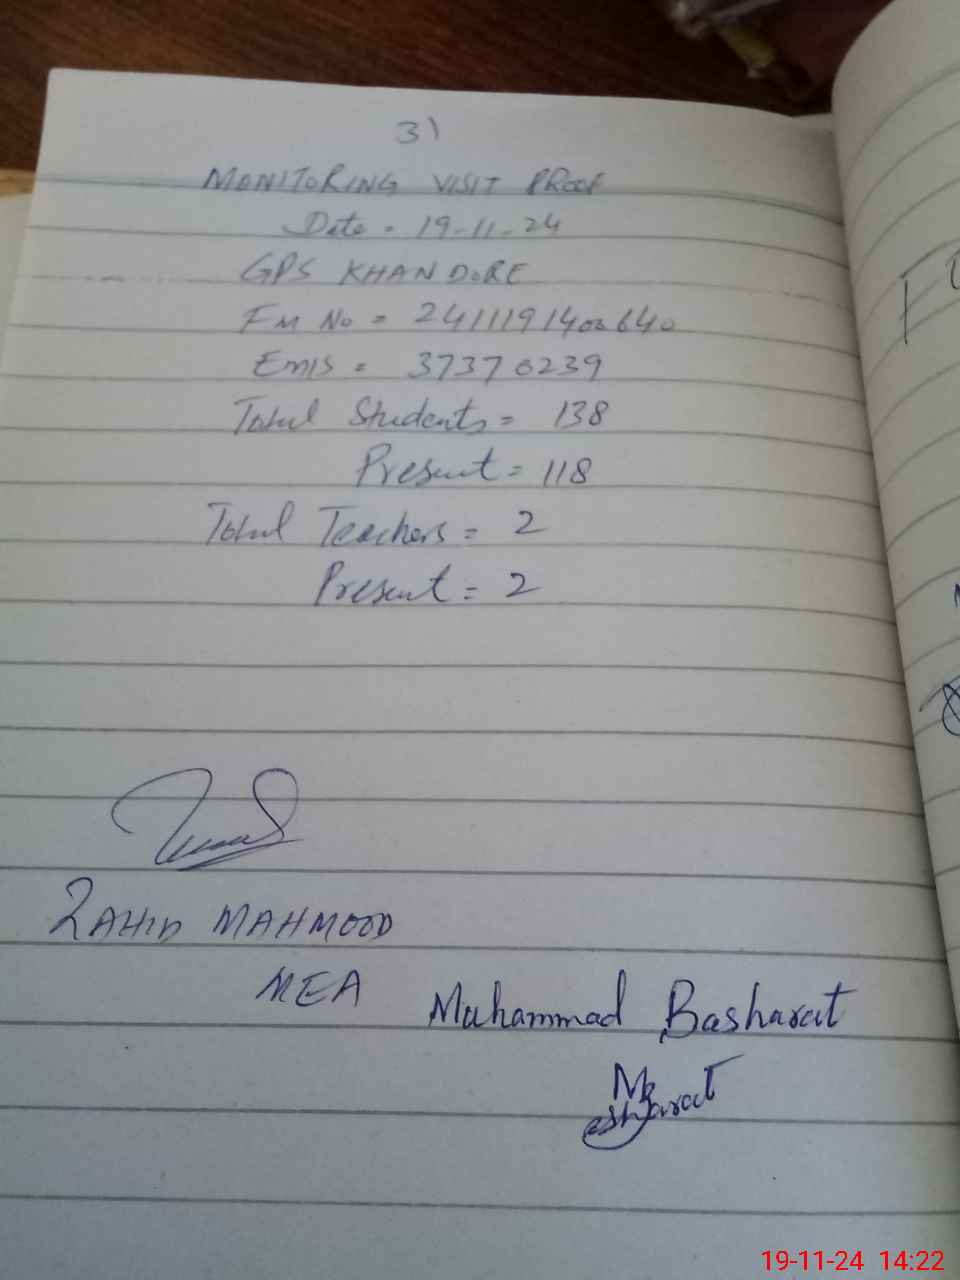 3)
MONITORING VISIT PROOF
Date = 19-11-24
GPS KHANDORE
Fm No = 2411191403640
Emis = 37370239
Total Students = 138
Present = 118
Total Teachers = 2
Present = 2
ZAHID MAHMOOD
MEA
Muhammad Basharat
19-11-24 14:22